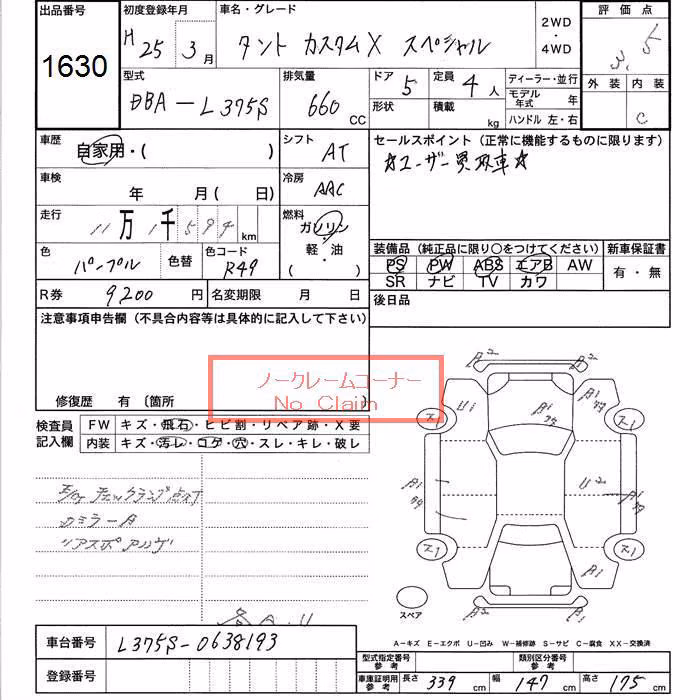 出品番号 初度登録年月 車名・グレード 2WD・4WD 評価点
1630 H 25年 3月 タント カスタムX スペシャル 3.5
型式 排気量 ドア 5 定員 4人 ディーラー・並行 外装 内装
DBA-L375S 660 CC 形状 積載 kg モデル年式 年 C
ハンドル 左・右
車歴 自家用・( ) シフト AT セールスポイント(正常に機能するものに限ります)
車検 年 月 ( 日) 冷房 AAC ☆ユーザー買取車☆
走行 11万1千594km 燃料 ガソリン・軽・油( )
色 パープル 色替 色コード R49 装備品(純正品に限り○をつけてください) 新車保証書
PS PW ABS エアB AW 有・無
SR ナビ TV カワ
R券 9200円 名変期限 月 日 後日品
注意事項申告欄(不具合内容等は具体的に記入して下さい)
ノークレームコーナー
No Claim
修復歴 有 〔箇所
検査員記入欄 FW キズ・飛石・ヒビ割・リペア跡・X要
内装 キズ・汚レ・コゲ・穴・スレ・キレ・破レ
チェックランプ点灯
ミラーA
リアスポ
A2 A2
ス1 U1 A1 ス1
U2
ス1 A1 ス1
U2 A2
スペア
A-キズ E-エクボ U-凹み W-補修跡 S-サビ C-腐食 XX-交換済
車台番号 L375S-0638193
登録番号
型式指定番号参考 類別区分番号参考
車庫証明用参考 長さ 339cm 幅 147cm 高さ 175cm